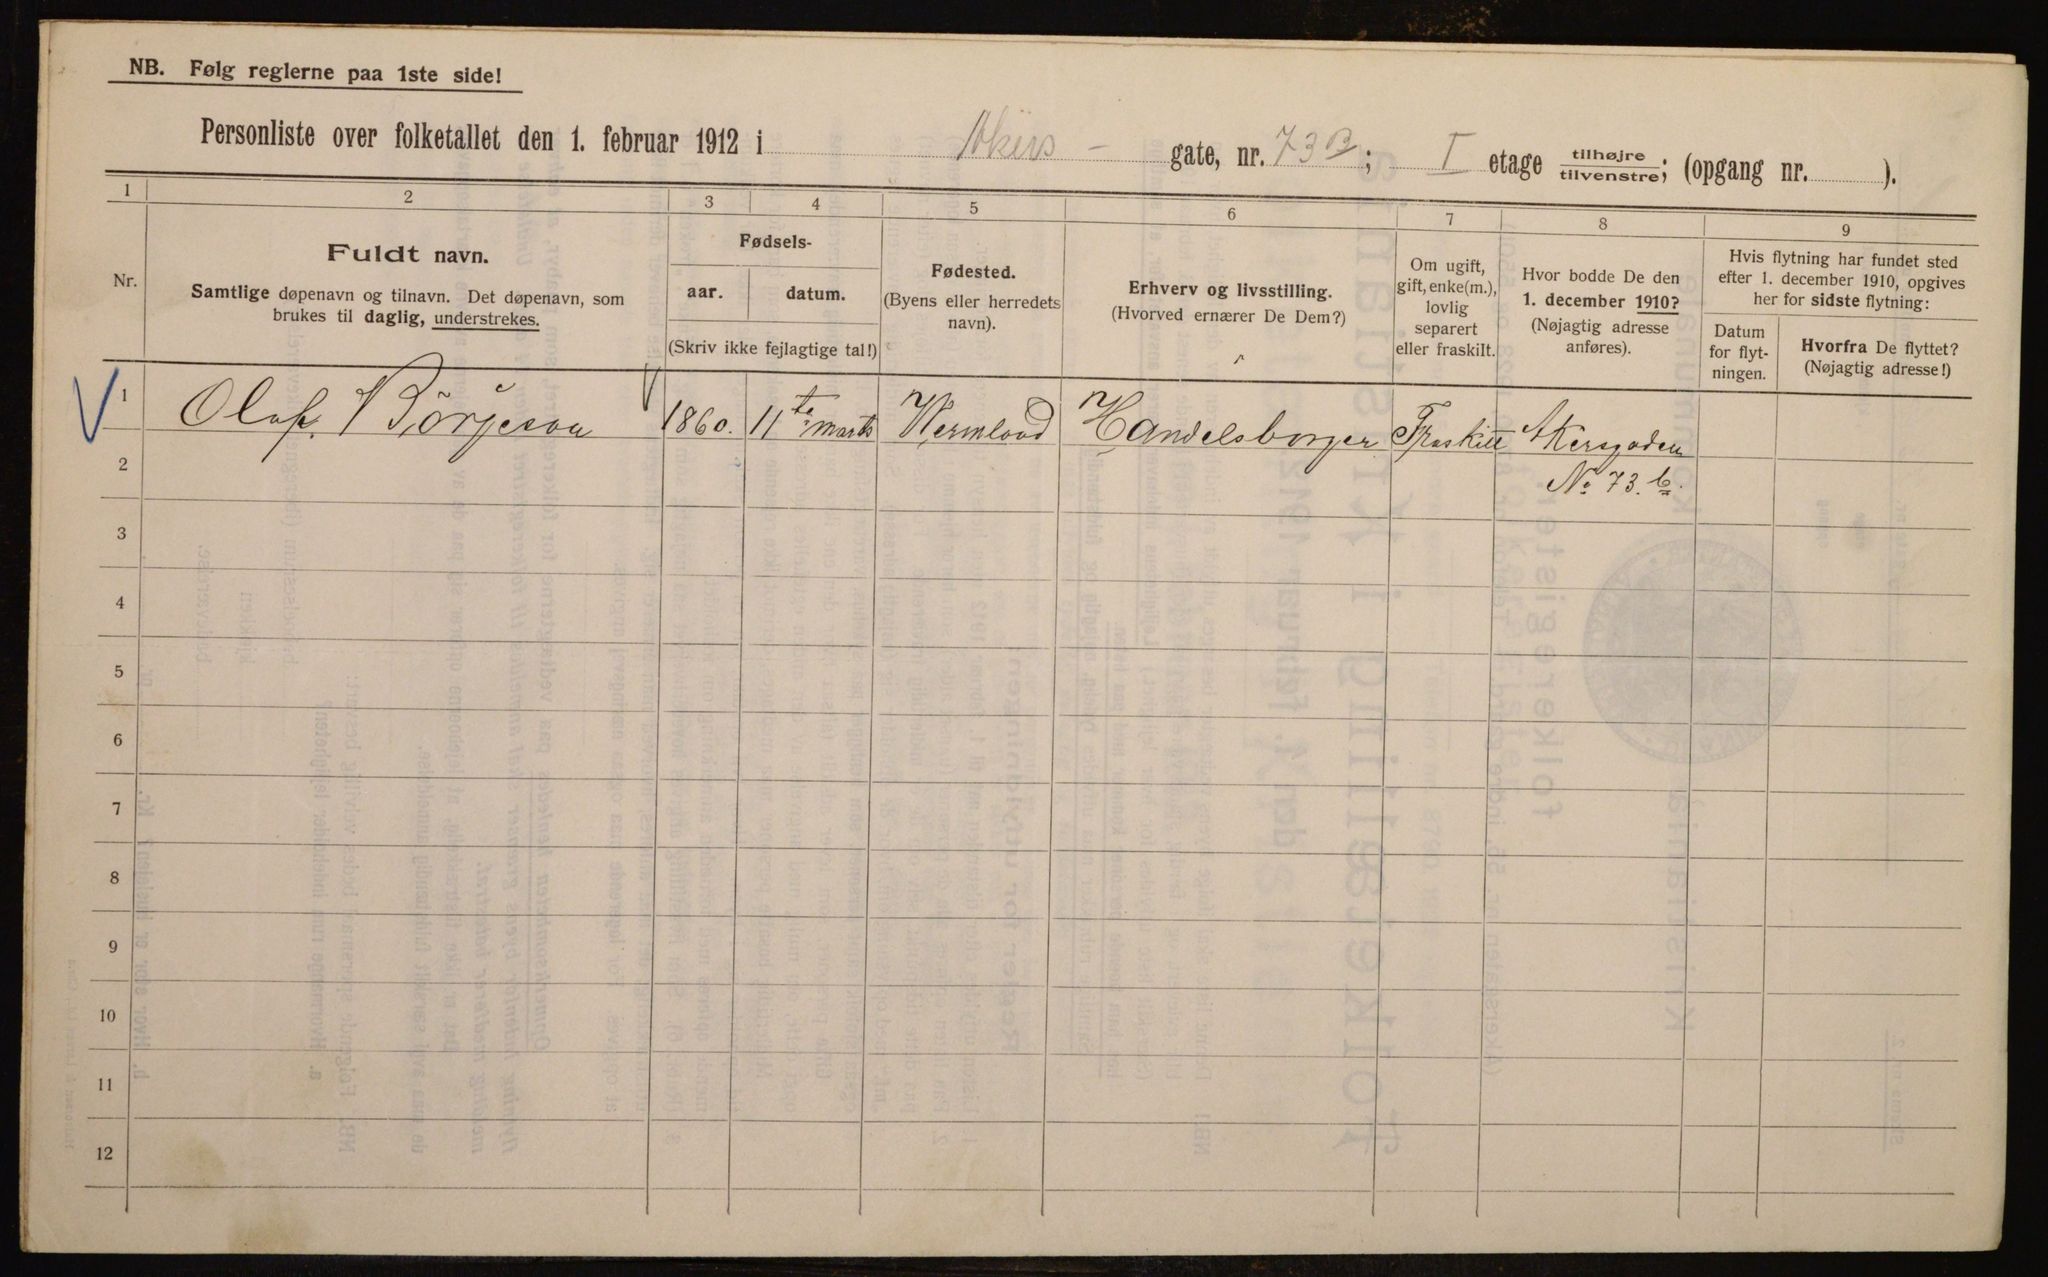 NB. Følg reglerne paa 1ste side!
Personliste over folketallet den 1. februar 1912 i Akers - gate, nr. 73B; I etage tilhøjre tilvenstre; (opgang nr. ).
1 2 3 4 5 6 7 8 9
Nr.
Fuldt navn.
Samtlige døpenavn og tilnavn. Det døpenavn, som
brukes til daglig, understrekes.
Fødsels-
aar.
datum.
(Skriv ikke fejlagtige tal!)
Fødested.
(Byens eller herredets
navn).
Erhverv og livsstilling.
(Hvorved ernærer De Dem?)
Om ugift,
gift, enke(m.),
lovlig
separert
eller fraskilt.
Hvor bodde De den
1. december 1910?
(Nøjagtig adresse
anføres).
Hvis flytning har fundet sted
efter 1. december 1910, opgives
her for sidste flytning:
Datum
for flyt-
ningen.
Hvorfra De flyttet?
(Nøjagtig adresse!)
1 Olof Börjeson 1860. 11te marts Wermland Handelsborger Fraskilt Akersgaden
2 No 73.b.
3
4
5
6
7
8
9
10
11
12